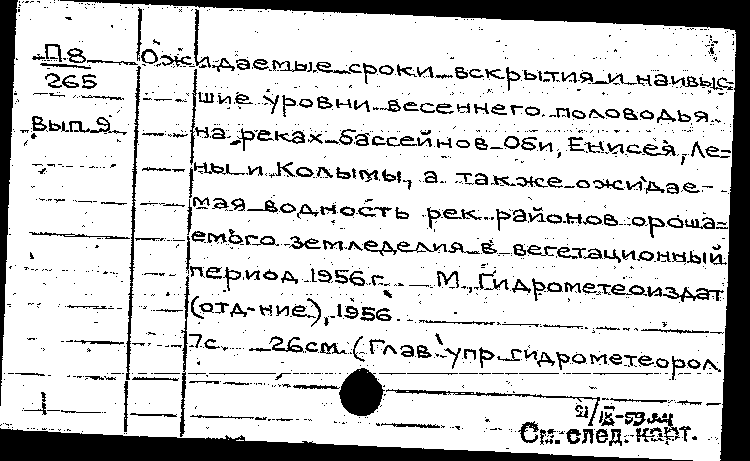 П8
265
вып.9
Ожидаемые сроки вскрытия и наивыс-
шие уровни весеннего половодья
на реках бассейнов Оби, Енисея, Ле=
ны и Колымы, а также ожидае-
мая водность рек районов ороша=
емого земледелия в вегетационный
период 1956 г. М., Гидрометеоиздат
(отд-ние), 1956.
7с. 26см. (Глав. упр. гидрометеорол
1
21/IX-59
См. след. карт.